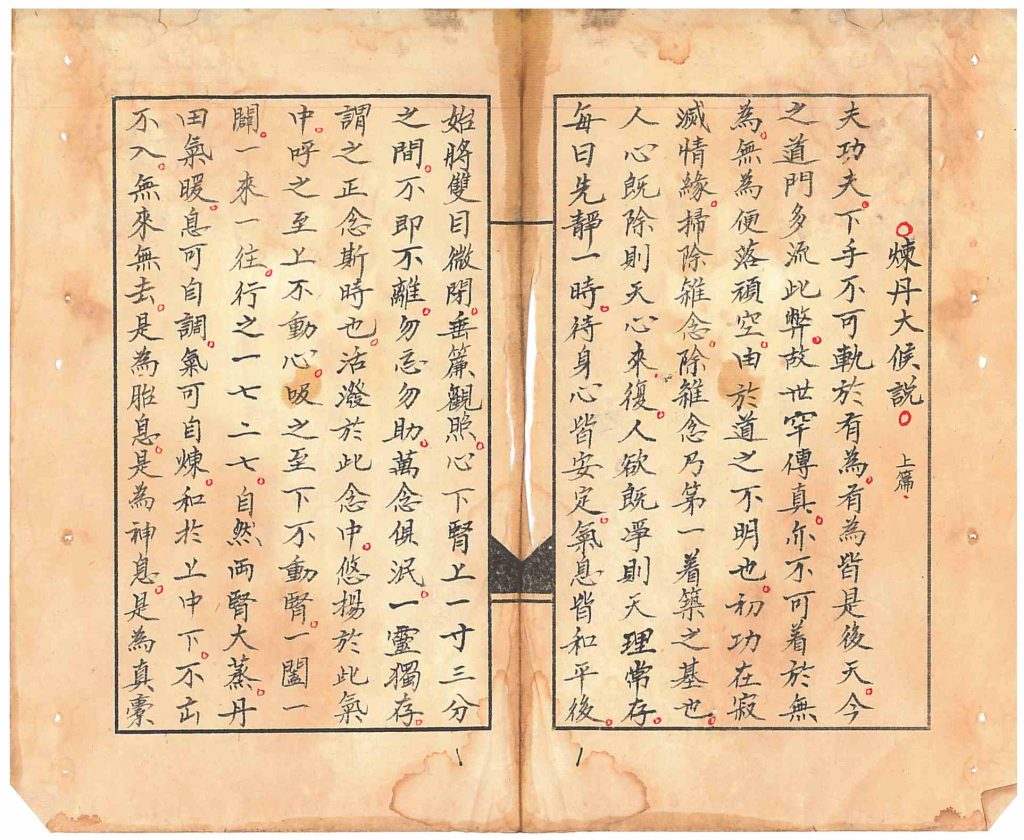 。煉丹大候說。 上篇
夫功夫。下手不可軌於有為。有為皆是後天。今
之道門多流此弊。故世罕傳真。亦不可着於無
為。無為便落頑空。由於道之不明也。初功在寂
滅情緣。掃除雜念。除雜念乃第一着築之基也。
人心既除則天心來復。人欲既凈則天理常存。
每日先靜一時。待身心皆安定。氣息皆和平。後
始將雙目微閉。垂簾觀照。心下腎上一寸三分
之間。不即不離。勿忘勿助。萬念俱泯。一靈獨存。
謂之正念斯時也。活潑於此念中。悠揚於此氣
中。呼之至上不動心。吸之至下不動腎。一闔一
闢。一來一往。行之一七二七。自然兩腎大蒸。丹
田氣暖。息可自調。氣可自煉。和於上中下。不出
不入。無來無去。是為胎息。是為神息。是為真橐